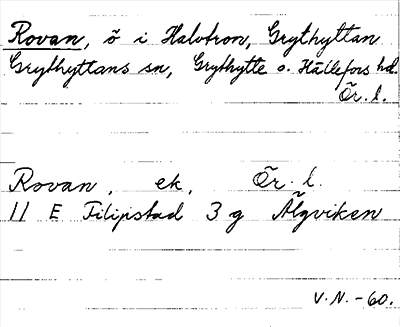 Rovan, ö i Halvtron, Grythyttan
Grythyttans sn, Grythytte o. Hällefors hd.
Ör. l.
Rovan, ek, Ör. l.
11 E Filipstad 3 g Älgviken
V.N. -60.